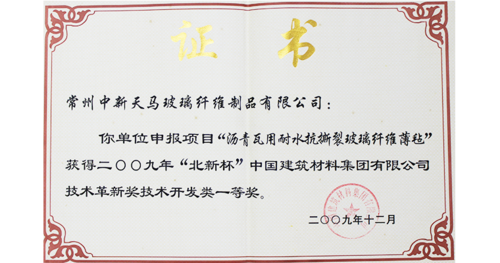 证书
常州中新天马玻璃纤维制品有限公司：
你单位申报项目“沥青瓦用耐水抗撕裂玻璃纤维薄毡”
获得二〇〇九年“北新杯”中国建筑材料集团有限公司
技术革新奖技术开发类一等奖。
二〇〇九年十二月